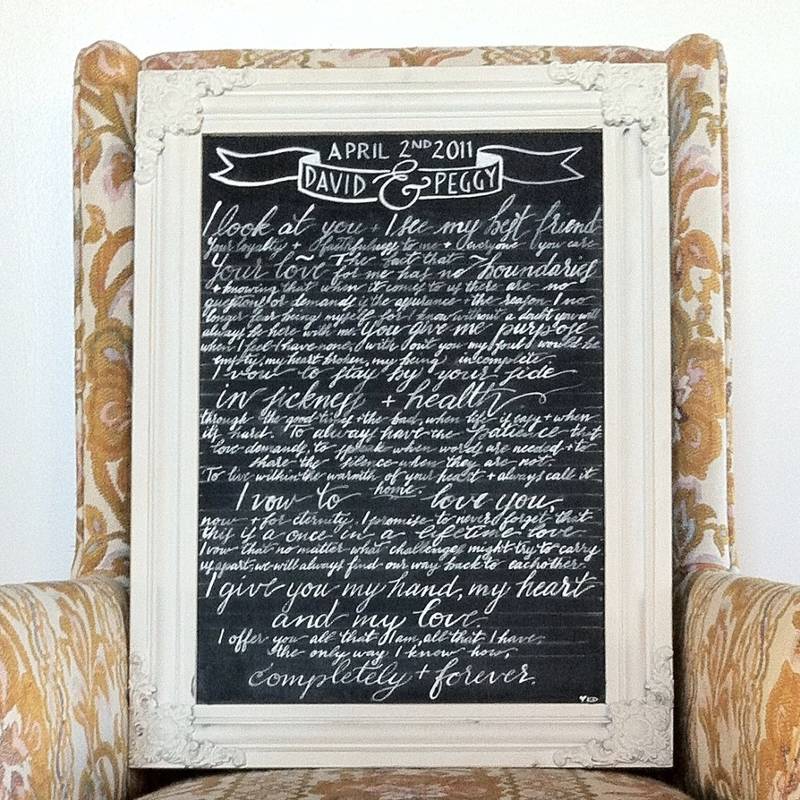 APRIL 2ND 2011
DAVID & PEGGY
I look at you + I see my best friend
Your loyalty + faithfulness to me + everyone you care
Your love for me has no boundaries The fact that
+ knowing that when it comes to us there are no
questions or demands is the assurance + the reason I no
longer fear being myself for I know without a doubt you will
always be here with me. You give me purpose
when I feel I have none, with out you my soul would be
empty, my heart broken, my being incomplete.
I vow to stay by your side
in sickness + health
through the good times + the bad, when life is easy + when
its hard. To always have the patience that
love demands, to speak when words are needed + to
share the silence when they are not.
To live within the warmth of your heart + always call it
home.
I vow to love you,
now + for eternity. I promise to never forget that
this is a once in a lifetime love
I vow that no matter what challenges might try to carry
us apart, we will always find our way back to eachother.
I give you my hand, my heart
and my love.
I offer you all that I am, all that I have,
the only way I know how,
completely + forever.